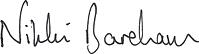 Nikki Bareham